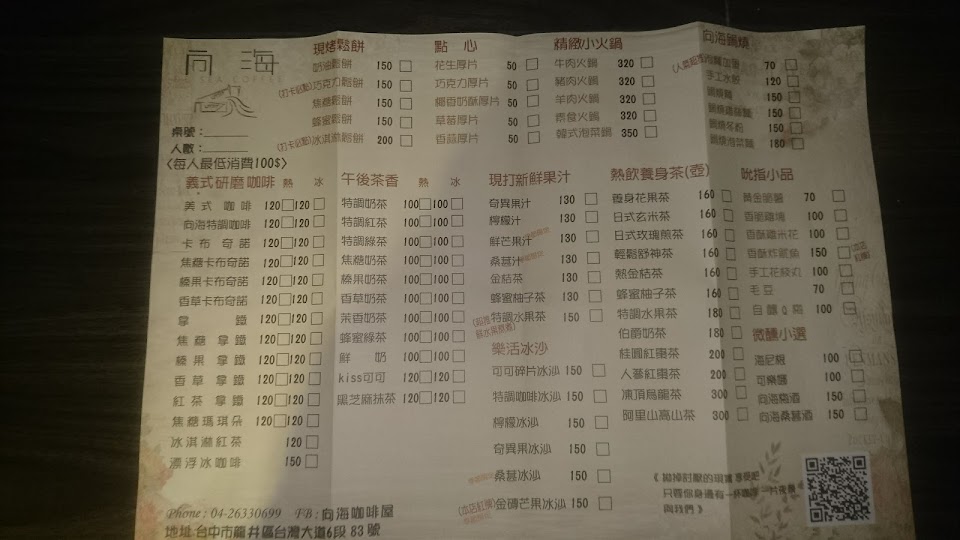 向海
SEA COFFEE
桌號：
人數：
〈每人最低消費100$〉
現烤鬆餅
奶油鬆餅 150
(打卡必點)巧克力鬆餅 150
焦糖鬆餅 150
蜂蜜鬆餅 150
(打卡必點)冰淇淋鬆餅 200
點 心
花生厚片 50
巧克力厚片 50
椰香奶酥厚片 50
草莓厚片 50
香蒜厚片 50
精緻小火鍋
牛肉火鍋 320
豬肉火鍋 320
羊肉火鍋 320
素食火鍋 320
韓式泡菜鍋 350
向海鍋燒
70
手工水餃 120
鍋燒麵 150
鍋燒雞絲麵 150
鍋燒冬粉 150
鍋燒泡菜麵 180
義式研磨咖啡 熱 冰
美式 咖啡 120 120
向海特調咖啡 120 120
卡布 奇諾 120 120
焦糖卡布奇諾 120 120
榛果卡布奇諾 120 120
香草卡布奇諾 120 120
拿 鐵 120 120
焦糖 拿鐵 120 120
榛果 拿鐵 120 120
香草 拿鐵 120 120
紅茶 拿鐵 120 120
焦糖瑪琪朵 120 120
冰淇淋紅茶 120
漂浮冰咖啡 150
午後茶香 熱 冰
特調奶茶 100 100
特調紅茶 100 100
特調綠茶 100 100
焦糖奶茶 100 100
榛果奶茶 100 100
香草奶茶 100 100
茉香奶茶 100 100
蜂蜜綠茶 100 100
鮮 奶 100 100
kiss可可 120 120
黑芝麻抹茶 120 120
現打新鮮果汁
奇異果汁 130
檸檬汁 130
鮮芒果汁 130
桑葚汁 130
金桔茶 130
蜂蜜柚子茶 130
特調水果茶 150
樂活冰沙
可可碎片冰沙 150
特調咖啡冰沙 150
檸檬冰沙 150
奇異果冰沙 150
桑葚冰沙 150
(本店紅牌)金磚芒果冰沙 150
熱飲養身茶(壺)
養身花果茶 160
日式玄米茶 160
日式玫瑰煎茶 160
輕鬆舒神茶 160
熱金桔茶 160
蜂蜜柚子茶 160
特調水果茶 180
伯爵奶茶 180
桂圓紅棗茶 200
人蔘紅棗茶 200
凍頂烏龍茶 300
阿里山高山茶 300
吮指小品
黃金脆薯 70
香脆雞塊 100
香酥雞米花 100
香酥炸魷魚 150
手工花枝丸 100
毛豆 70
100
微醺小選
海尼根 100
可樂娜 100
向海高酒 150
向海桑葚酒 150
Phone : 04-26330699 FB : 向海咖啡屋
地址:台中市龍井區台灣大道6段 83 號